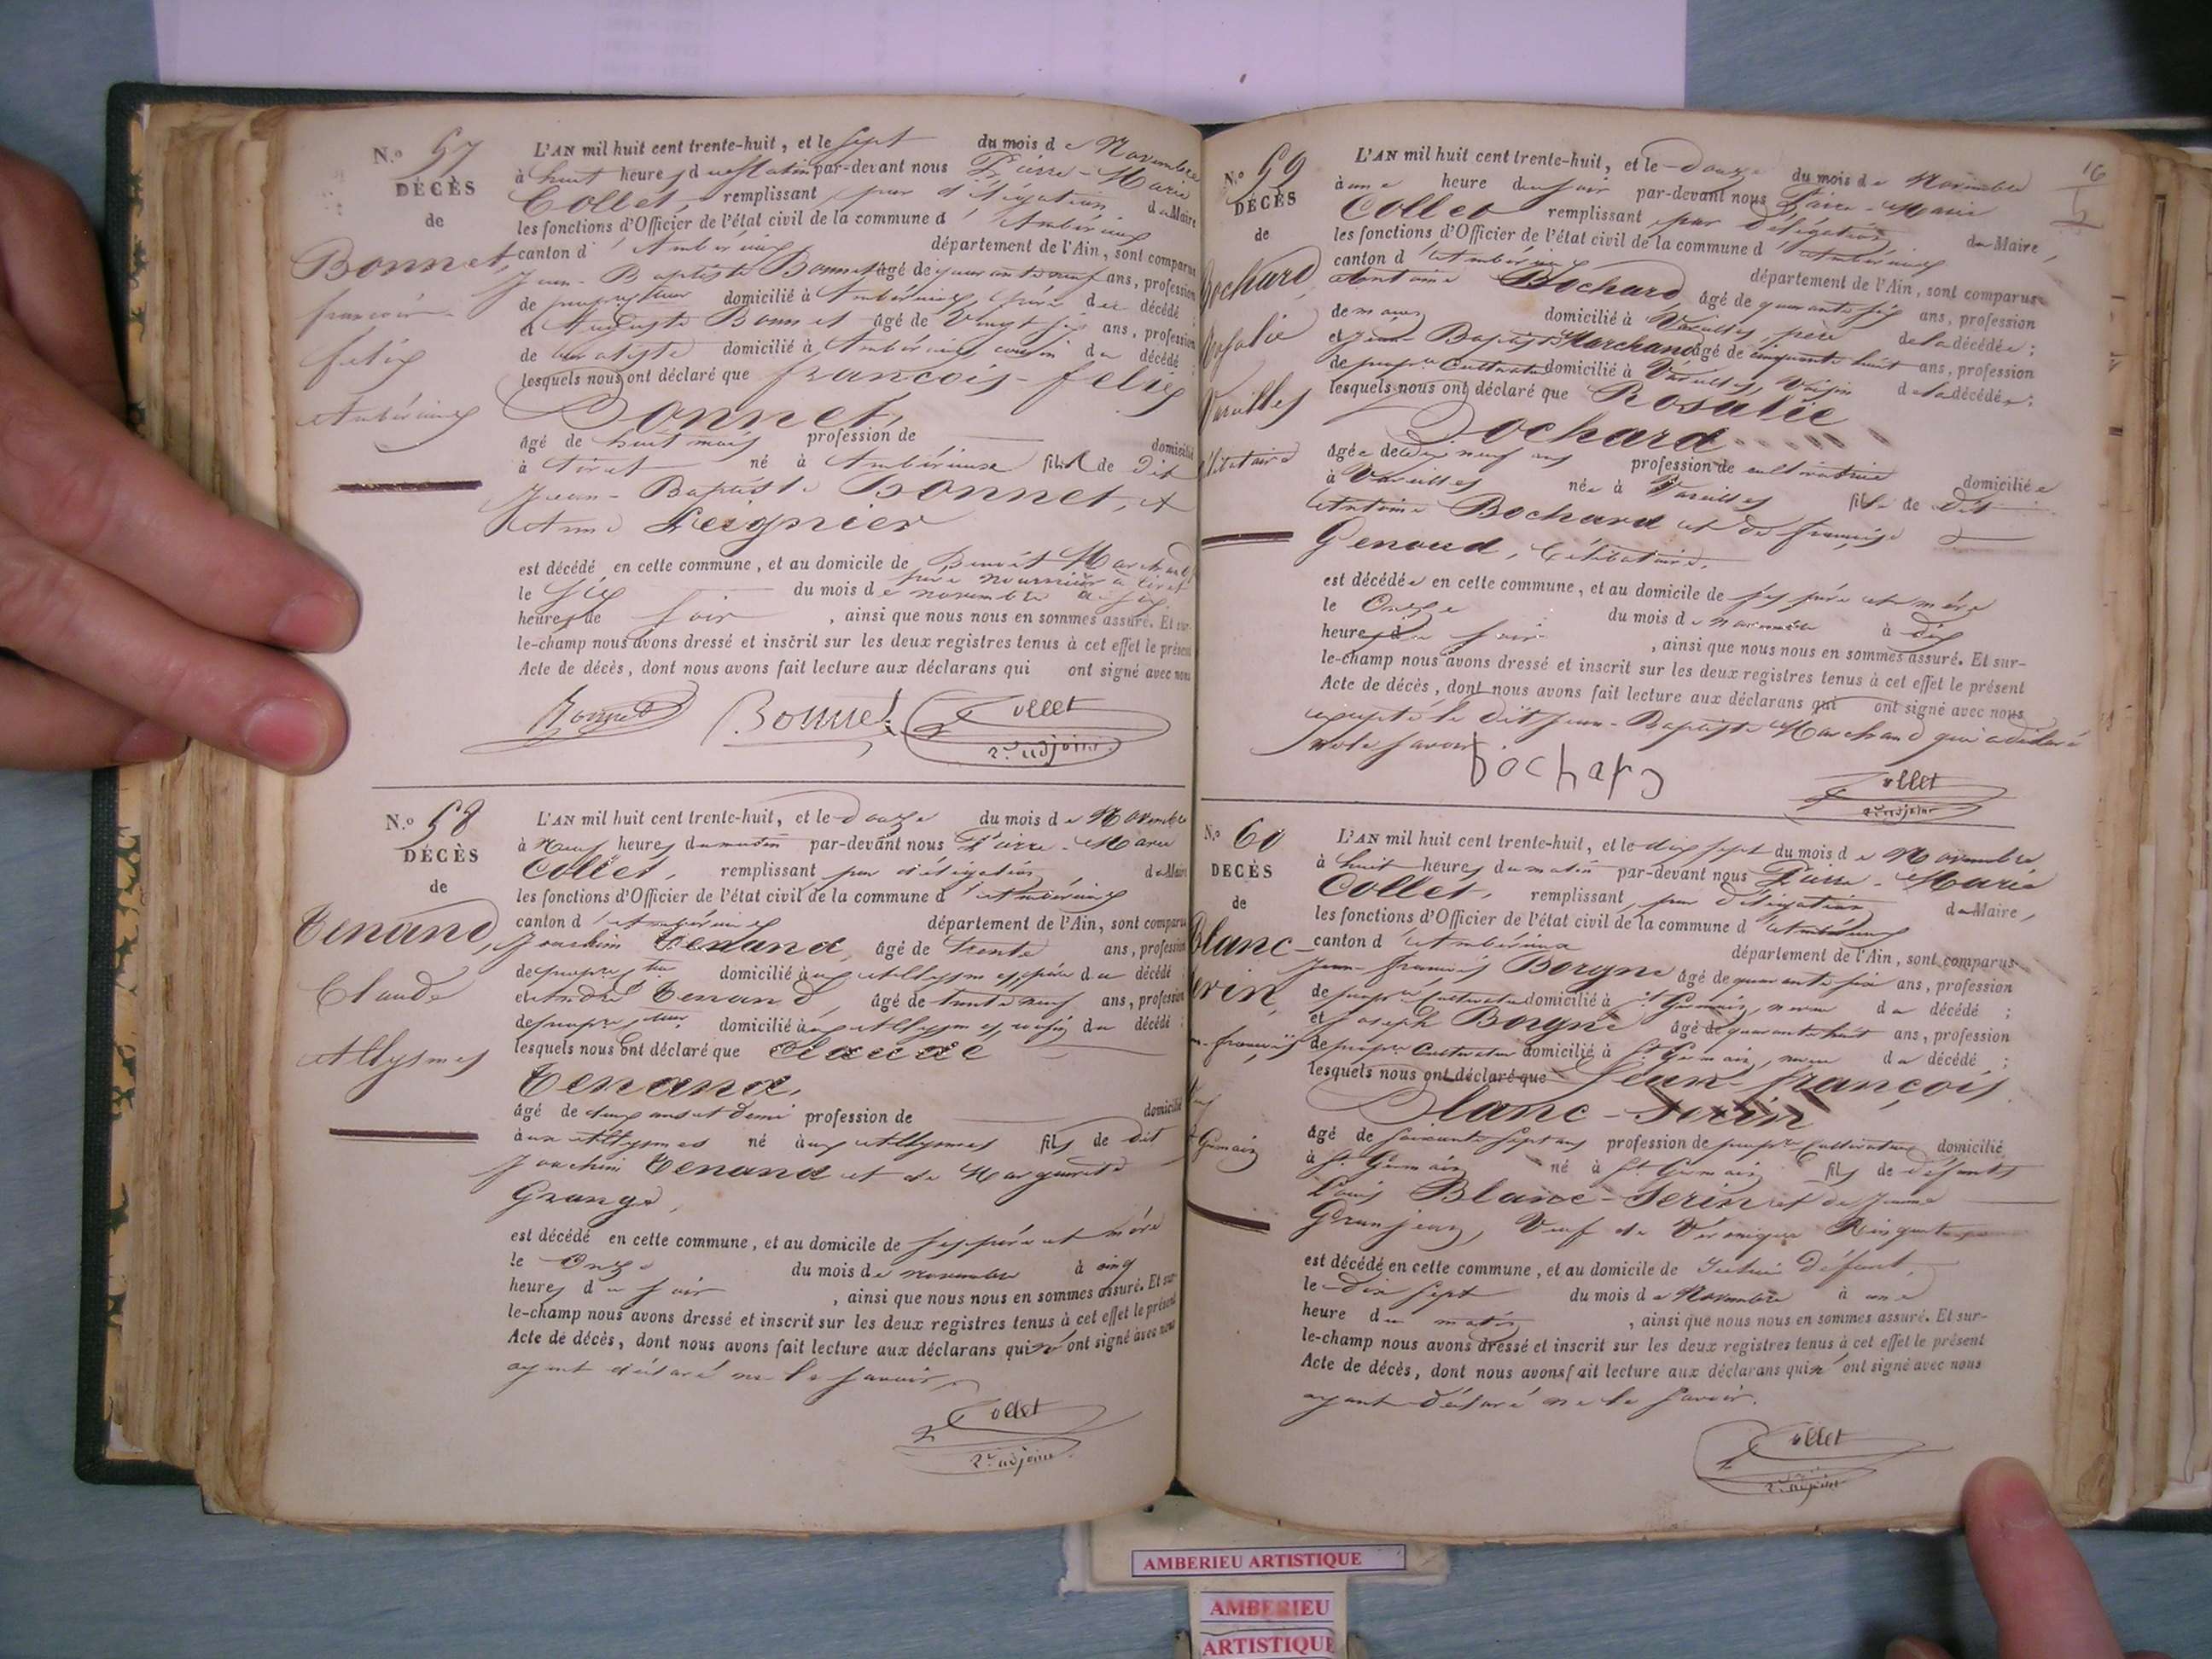 N.º 57
DÉCÈS
de
Bonnet,
françois
felix
Ambérieux
L'AN mil huit cent trente-huit, et le sept du mois de Novembre
à huit heures du matin par-devant nous Pierre-Marie
Collet, remplissant par délégation du Maire
les fonctions d'Officier de l'état civil de la commune d'Ambérieux
canton d'Ambérieux département de l'Ain, sont comparus
Jean-Baptiste Bonnet âgé de quarante neuf ans, profession
de propriétaire domicilié à Ambérieux, père du décédé ;
et Auguste Bonnet âgé de Vingt six ans, profession
de domicilié à Ambérieux, cousin du décédé
lesquels nous ont déclaré que françois-felix
Bonnet,
âgé de huit mois profession de domicilié
à tiret né à Ambérieux fils de dit
Jean-Baptiste Bonnet, et
Anne Leignier
est décédé en cette commune, et au domicile de Benoît Marchand
père nourricier à tiret
le six du mois de novembre à six
heures de soir, ainsi que nous nous en sommes assuré. Et sur-
le-champ nous avons dressé et inscrit sur les deux registres tenus à cet effet le présent
Acte de décès, dont nous avons fait lecture aux déclarans qui ont signé avec nous
Bonnet Bonnet Collet
2e adjoint
N.º 58
DÉCÈS
de
Tenand,
Claude
Allysmes
L'AN mil huit cent trente-huit, et le douze du mois de Novembre
à Neuf heures du matin par-devant nous Pierre-Marie
Collet, remplissant par délégation du Maire
les fonctions d'Officier de l'état civil de la commune d'Ambérieux
canton d'Ambérieux département de l'Ain, sont comparus
Joachim Tenand, âgé de trente ans, profession
de propriétaire domicilié aux Allysmes, père du décédé ;
et André Tenand, âgé de trente neuf ans, profession
de propriétaire domicilié aux Allysmes, voisin du décédé ;
lesquels nous ont déclaré que Claude
Tenand,
âgé de deux ans et demi profession de domicilié
aux Allysmes né aux Allysmes fils de dit
Joachim Tenand et de Marguerite
Grange,
est décédé en cette commune, et au domicile de ses père et mère
le Onze du mois de novembre à cinq
heures du soir, ainsi que nous nous en sommes assuré. Et sur-
le-champ nous avons dressé et inscrit sur les deux registres tenus à cet effet le présent
Acte de décès, dont nous avons fait lecture aux déclarans qui n'ont signé avec nous
ayant déclaré ne le savoir.
Collet
2e adjoint
16
N.º 59
DÉCÈS
de
Bochard,
Rosalie
Vareilles
Célibataire
L'AN mil huit cent trente-huit, et le douze du mois de Novembre
à une heure du soir par-devant nous Pierre-Marie
Collet remplissant par délégation du Maire,
les fonctions d'Officier de l'état civil de la commune d'Ambérieux
canton d'Ambérieux département de l'Ain, sont comparus
Antoine Bochard, âgé de quarante six ans, profession
de maçon domicilié à Vareilles, père de la décédée ;
et Jean-Baptiste Marchand âgé de cinquante huit ans, profession
de propre Cultivateur domicilié à Vareilles, Voisin de la décédée ;
lesquels nous ont déclaré que Rosalie
Bochard
âgée de dix neuf ans profession de cultivatrice domiciliée
à Vareilles née à Vareilles fille de dit
Antoine Bochard et de françoise
Genoud, Célibataire.
est décédée en cette commune, et au domicile de ses père et mère
le Onze du mois de novembre à dix
heures du soir, ainsi que nous nous en sommes assuré. Et sur-
le-champ nous avons dressé et inscrit sur les deux registres tenus à cet effet le présent
Acte de décès, dont nous avons fait lecture aux déclarans qui ont signé avec nous
excepté le dit Jean-Baptiste Marchand qui a déclaré
ne le savoir.
bochard
Collet
2e adjoint
N.º 60
DÉCÈS
de
Blanc-
Serin,
Jean-françois
St Germain
L'AN mil huit cent trente-huit, et le dix sept du mois de Novembre
à huit heures du matin par-devant nous Pierre-Marie
Collet, remplissant par délégation du Maire,
les fonctions d'Officier de l'état civil de la commune d'Ambérieux
canton d'Ambérieux département de l'Ain, sont comparus
Jean-françois Borgne âgé de quarante six ans, profession
de propre Cultivateur domicilié à St Germain, neveu du décédé ;
et Joseph Borgne âgé de quarante huit ans, profession
de propre Cultivateur domicilié à St Germain, neveu du décédé ;
lesquels nous ont déclaré que Jean-françois
Blanc-Serin
âgé de soixante sept ans profession de propre Cultivateur domicilié
à St Germain né à St Germain fils de défunts
Louis Blanc-Serin et de Jeanne
Granjean, Veuf de Véronique
est décédé en cette commune, et au domicile de défunt,
le dix sept du mois de Novembre à une
heure du matin, ainsi que nous nous en sommes assuré. Et sur-
le-champ nous avons dressé et inscrit sur les deux registres tenus à cet effet le présent
Acte de décès, dont nous avons fait lecture aux déclarans qui n'ont signé avec nous
ayant déclaré ne le savoir.
Collet
2e adjoint
AMBERIEU ARTISTIQUE
AMBERIEU
ARTISTIQUE